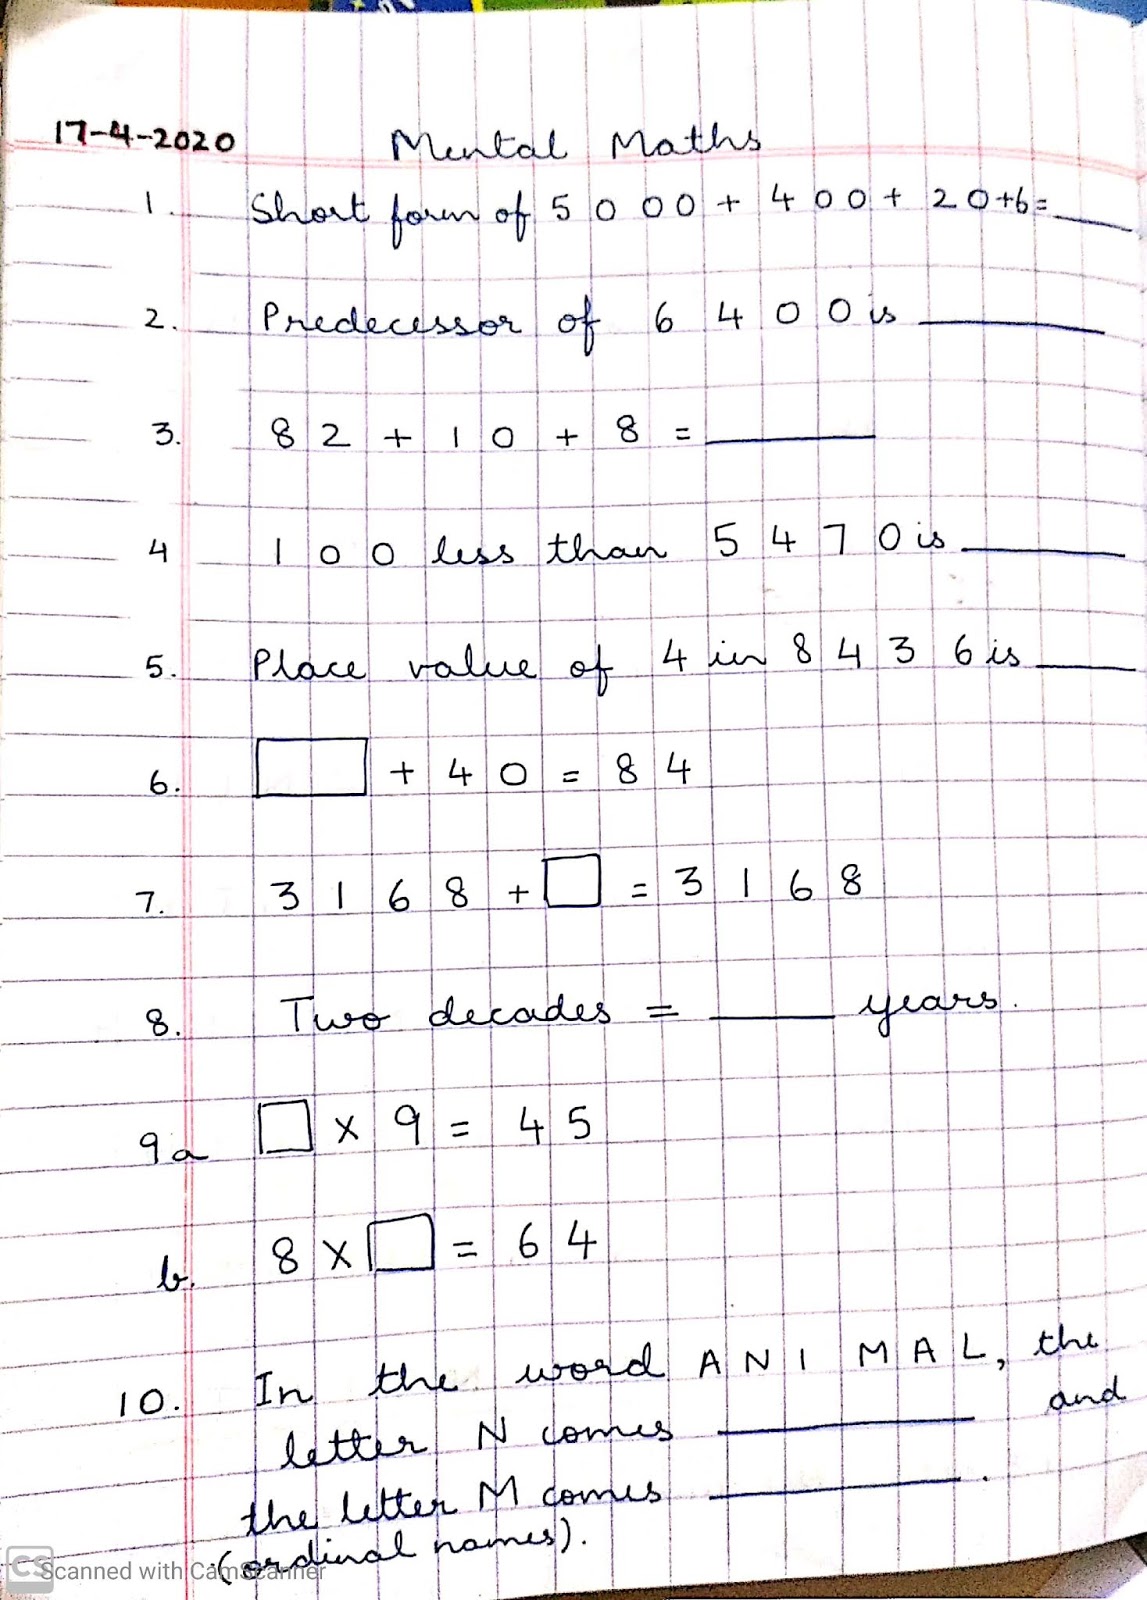 17-4-2020 Mental Maths
1. Short form of 5000 + 400 + 20+6 = ____
2. Predecessor of 6400 is ____
3. 82 + 10 + 8 = ____
4 100 less than 5470 is ____
5. Place value of 4 in 8436 is ____
6. □ + 40 = 84
7. 3168 + □ = 3168
8. Two decades = ____ years.
9a □ × 9 = 45
b. 8 × □ = 64
10. In the word ANIMAL, the
letter N comes ____ and
the letter M comes ____.
(ordinal names).
CS Scanned with CamScanner